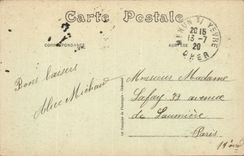 Carte Postale
CORRESPONDANCE
ADRESSE
YEVRE
20 15
13-7
20
CHER
Bons baisers
Alice Michaud
Monsieur Madame
Lafay, 23 avenue
de Laumière
Paris
19ème